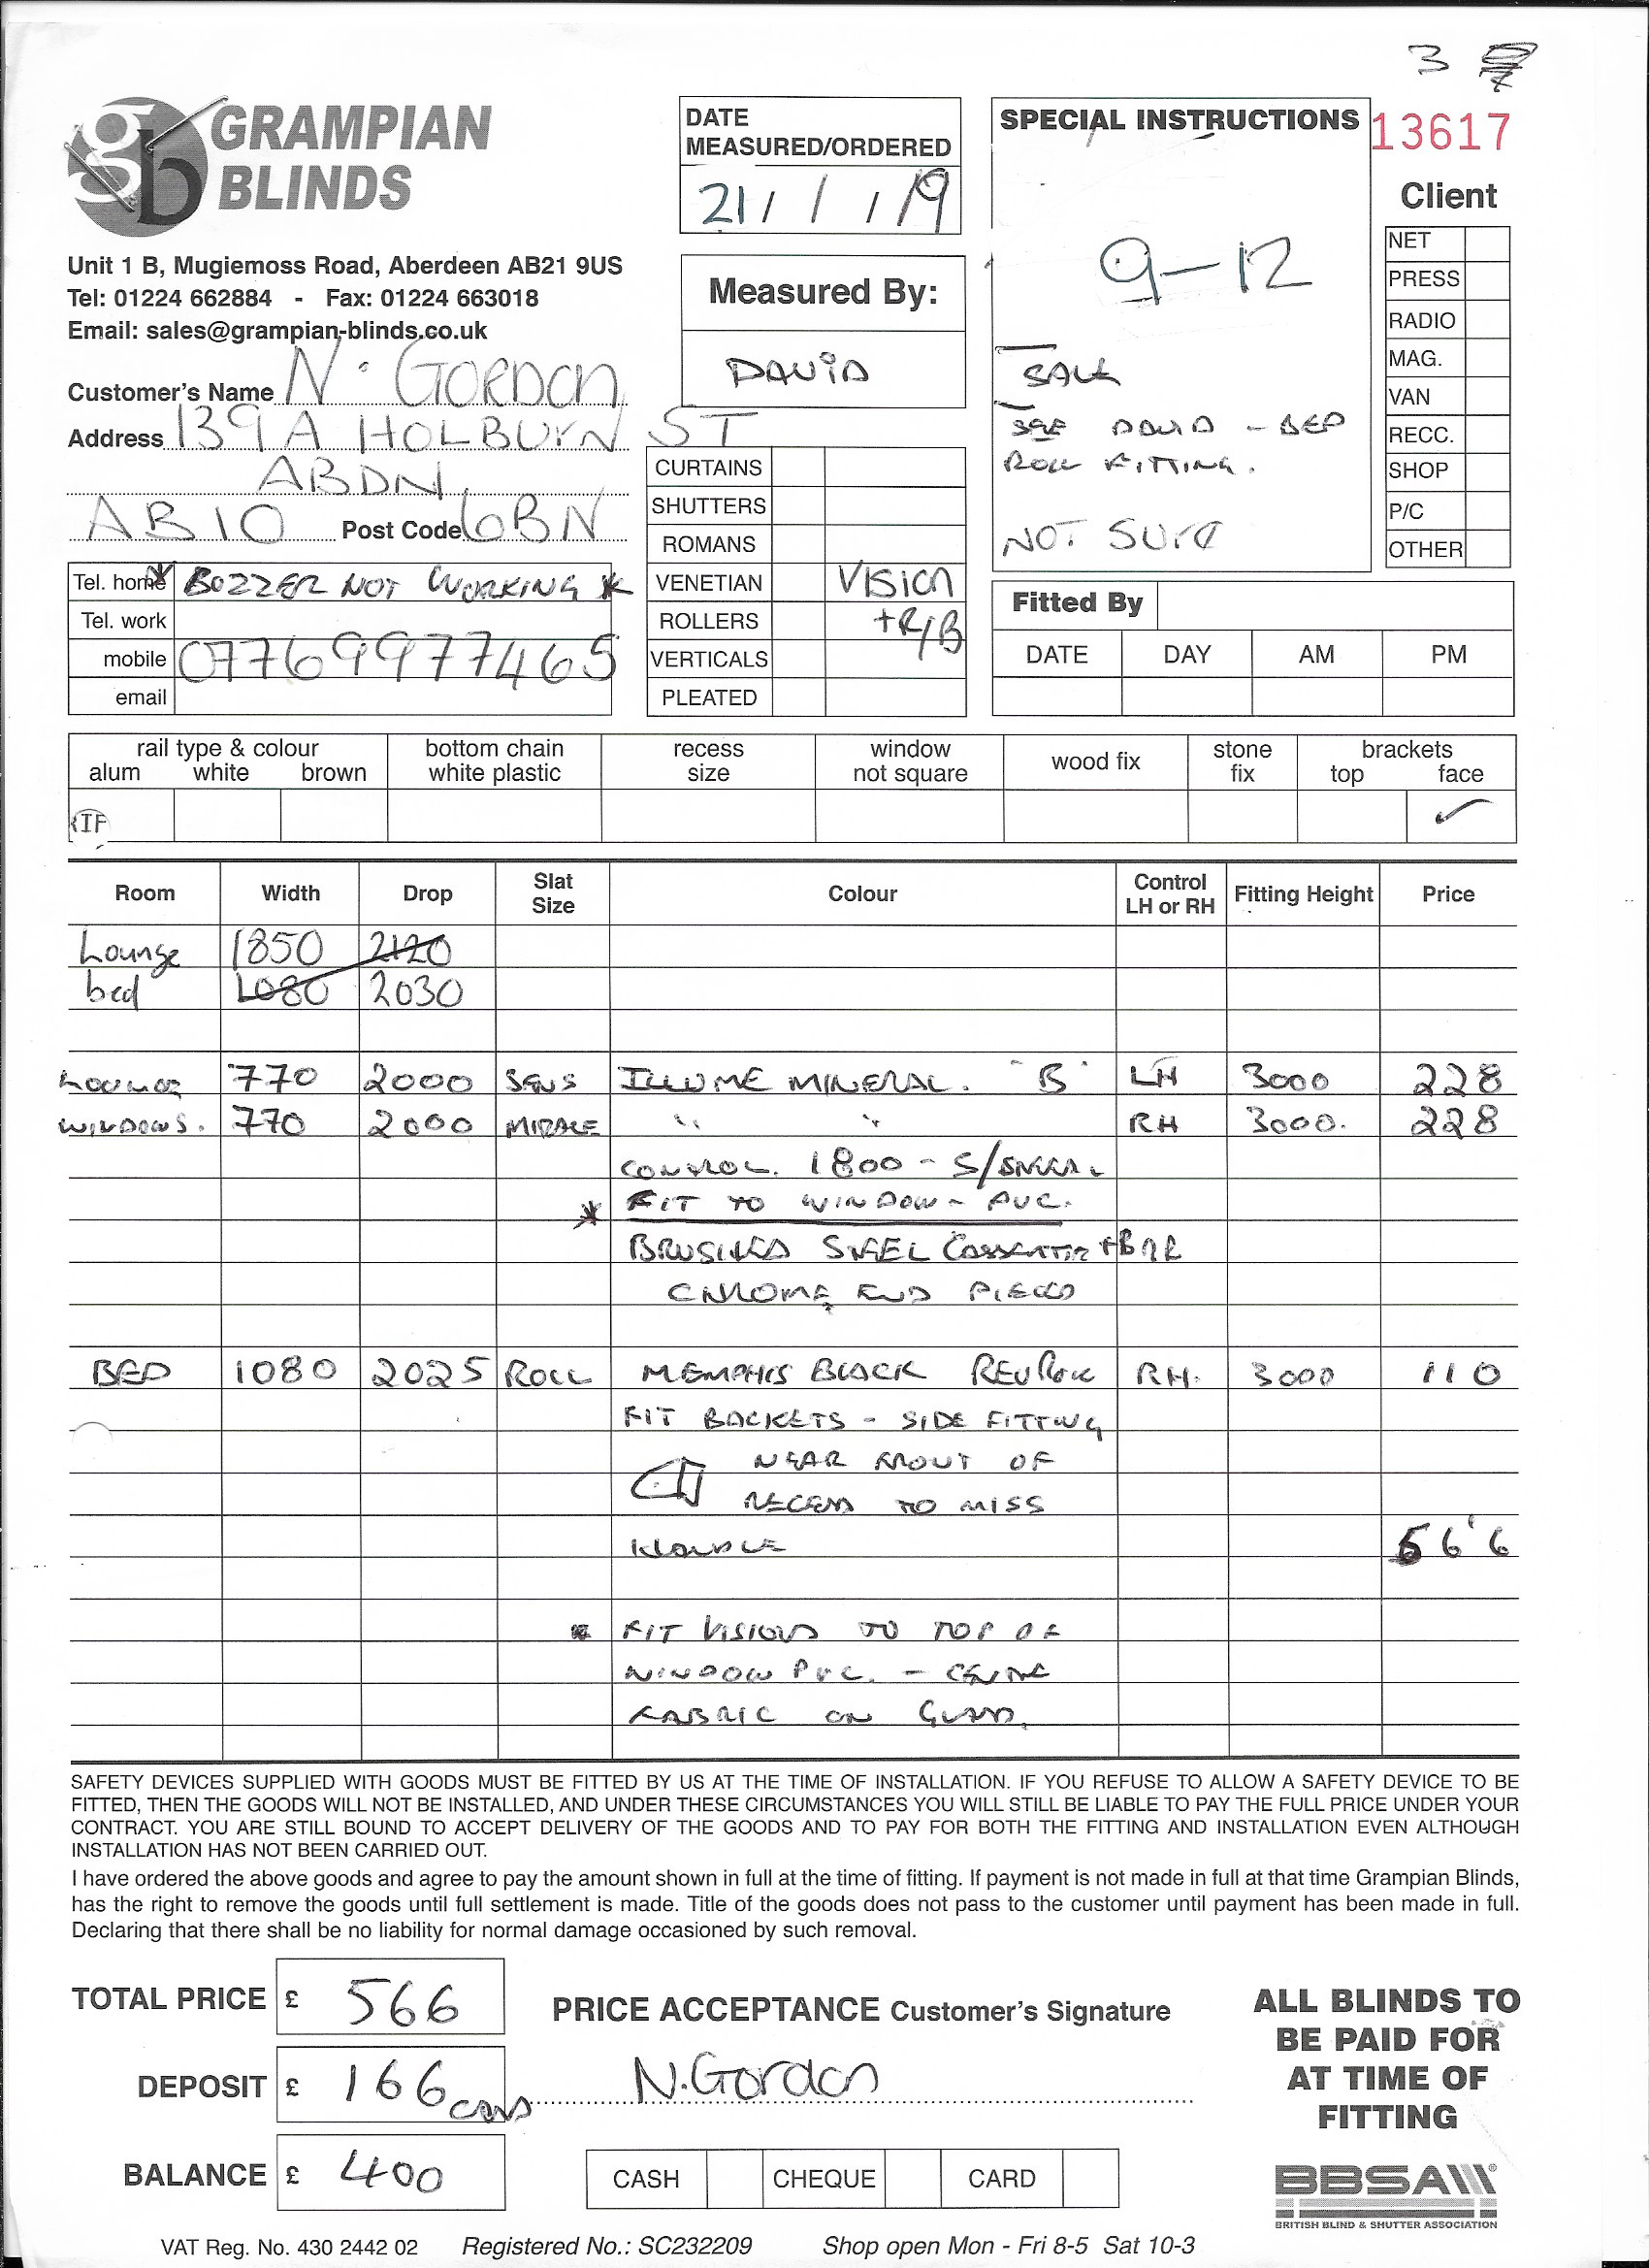 3
GRAMPIAN
BLINDS
Unit 1 B, Mugiemoss Road, Aberdeen AB21 9US
Tel: 01224 662884 - Fax: 01224 663018
Email: sales@grampian-blinds.co.uk
Customer's Name N. GORDON
Address 139A HOLBURN ST
ABDN
AB10 Post Code 6BN
Tel. home * BUZZER NOT WORKING *
Tel. work
mobile 07769977465
email
DATE
MEASURED/ORDERED
21/1/19
Measured By:
DAVID
CURTAINS
SHUTTERS
ROMANS
VENETIAN VISION
ROLLERS +R/B
VERTICALS
PLEATED
SPECIAL INSTRUCTIONS
9-12
SALE
SEE DAVID - BED
ROLL FITTING.
NOT SURE
13617
Client
NET
PRESS
RADIO
MAG.
VAN
RECC.
SHOP
P/C
OTHER
Fitted By
DATE DAY AM PM
rail type & colour bottom chain recess window wood fix stone brackets
alum white brown white plastic size not square fix top face
✓
Room Width Drop Slat Size Colour Control LH or RH Fitting Height Price
Lounge 1850 2120
bed 1080 2030
LOUNGE 770 2000 SENS ILLUME MINERAL. "B" LH 3000 228
WINDOWS. 770 2000 MIRAGE " " RH 3000. 228
CONTROL. 1800 - S/STEEL
* FIT TO WINDOW - PVC.
BRUSHED STEEL CASSETTE + BAR
CHROME END PIECES
BED 1080 2025 ROLL MEMPHIS BLACK REV ROLL RH. 3000 110
FIT BACKETS - SIDE FITTING
NEAR FRONT OF
RECESS TO MISS
HANDLE
566
* FIT VISIONS TO TOP OF
WINDOW PVC. - CENTRE
FABRIC ON GLASS.
SAFETY DEVICES SUPPLIED WITH GOODS MUST BE FITTED BY US AT THE TIME OF INSTALLATION. IF YOU REFUSE TO ALLOW A SAFETY DEVICE TO BE
FITTED, THEN THE GOODS WILL NOT BE INSTALLED, AND UNDER THESE CIRCUMSTANCES YOU WILL STILL BE LIABLE TO PAY THE FULL PRICE UNDER YOUR
CONTRACT. YOU ARE STILL BOUND TO ACCEPT DELIVERY OF THE GOODS AND TO PAY FOR BOTH THE FITTING AND INSTALLATION EVEN ALTHOUGH
INSTALLATION HAS NOT BEEN CARRIED OUT.
I have ordered the above goods and agree to pay the amount shown in full at the time of fitting. If payment is not made in full at that time Grampian Blinds,
has the right to remove the goods until full settlement is made. Title of the goods does not pass to the customer until payment has been made in full.
Declaring that there shall be no liability for normal damage occasioned by such removal.
TOTAL PRICE £ 566
DEPOSIT £ 166
BALANCE £ 400
PRICE ACCEPTANCE Customer's Signature
N.Gordon
CASH CHEQUE CARD
ALL BLINDS TO
BE PAID FOR
AT TIME OF
FITTING
BBSA
BRITISH BLIND & SHUTTER ASSOCIATION
VAT Reg. No. 430 2442 02 Registered No.: SC232209 Shop open Mon - Fri 8-5 Sat 10-3